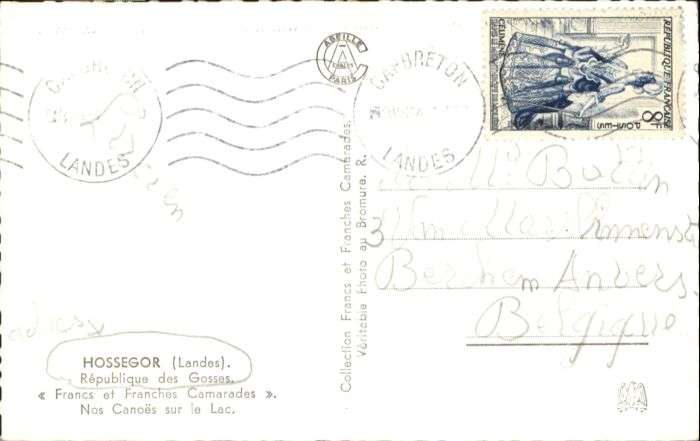 ABEILLE
PARIS
CAPBRETON
LANDES
CAPBRETON
LANDES
CELIMENE
REPUBLIQUE FRANÇAISE
8F
POSTES
Berchem Anvers
Belgique
Collection Francs et Franches Camarades.
Véritable Photo au Bromure. R.
HOSSEGOR (Landes).
République des Gosses.
« Francs et Franches Camarades ».
Nos Canoës sur le Lac.